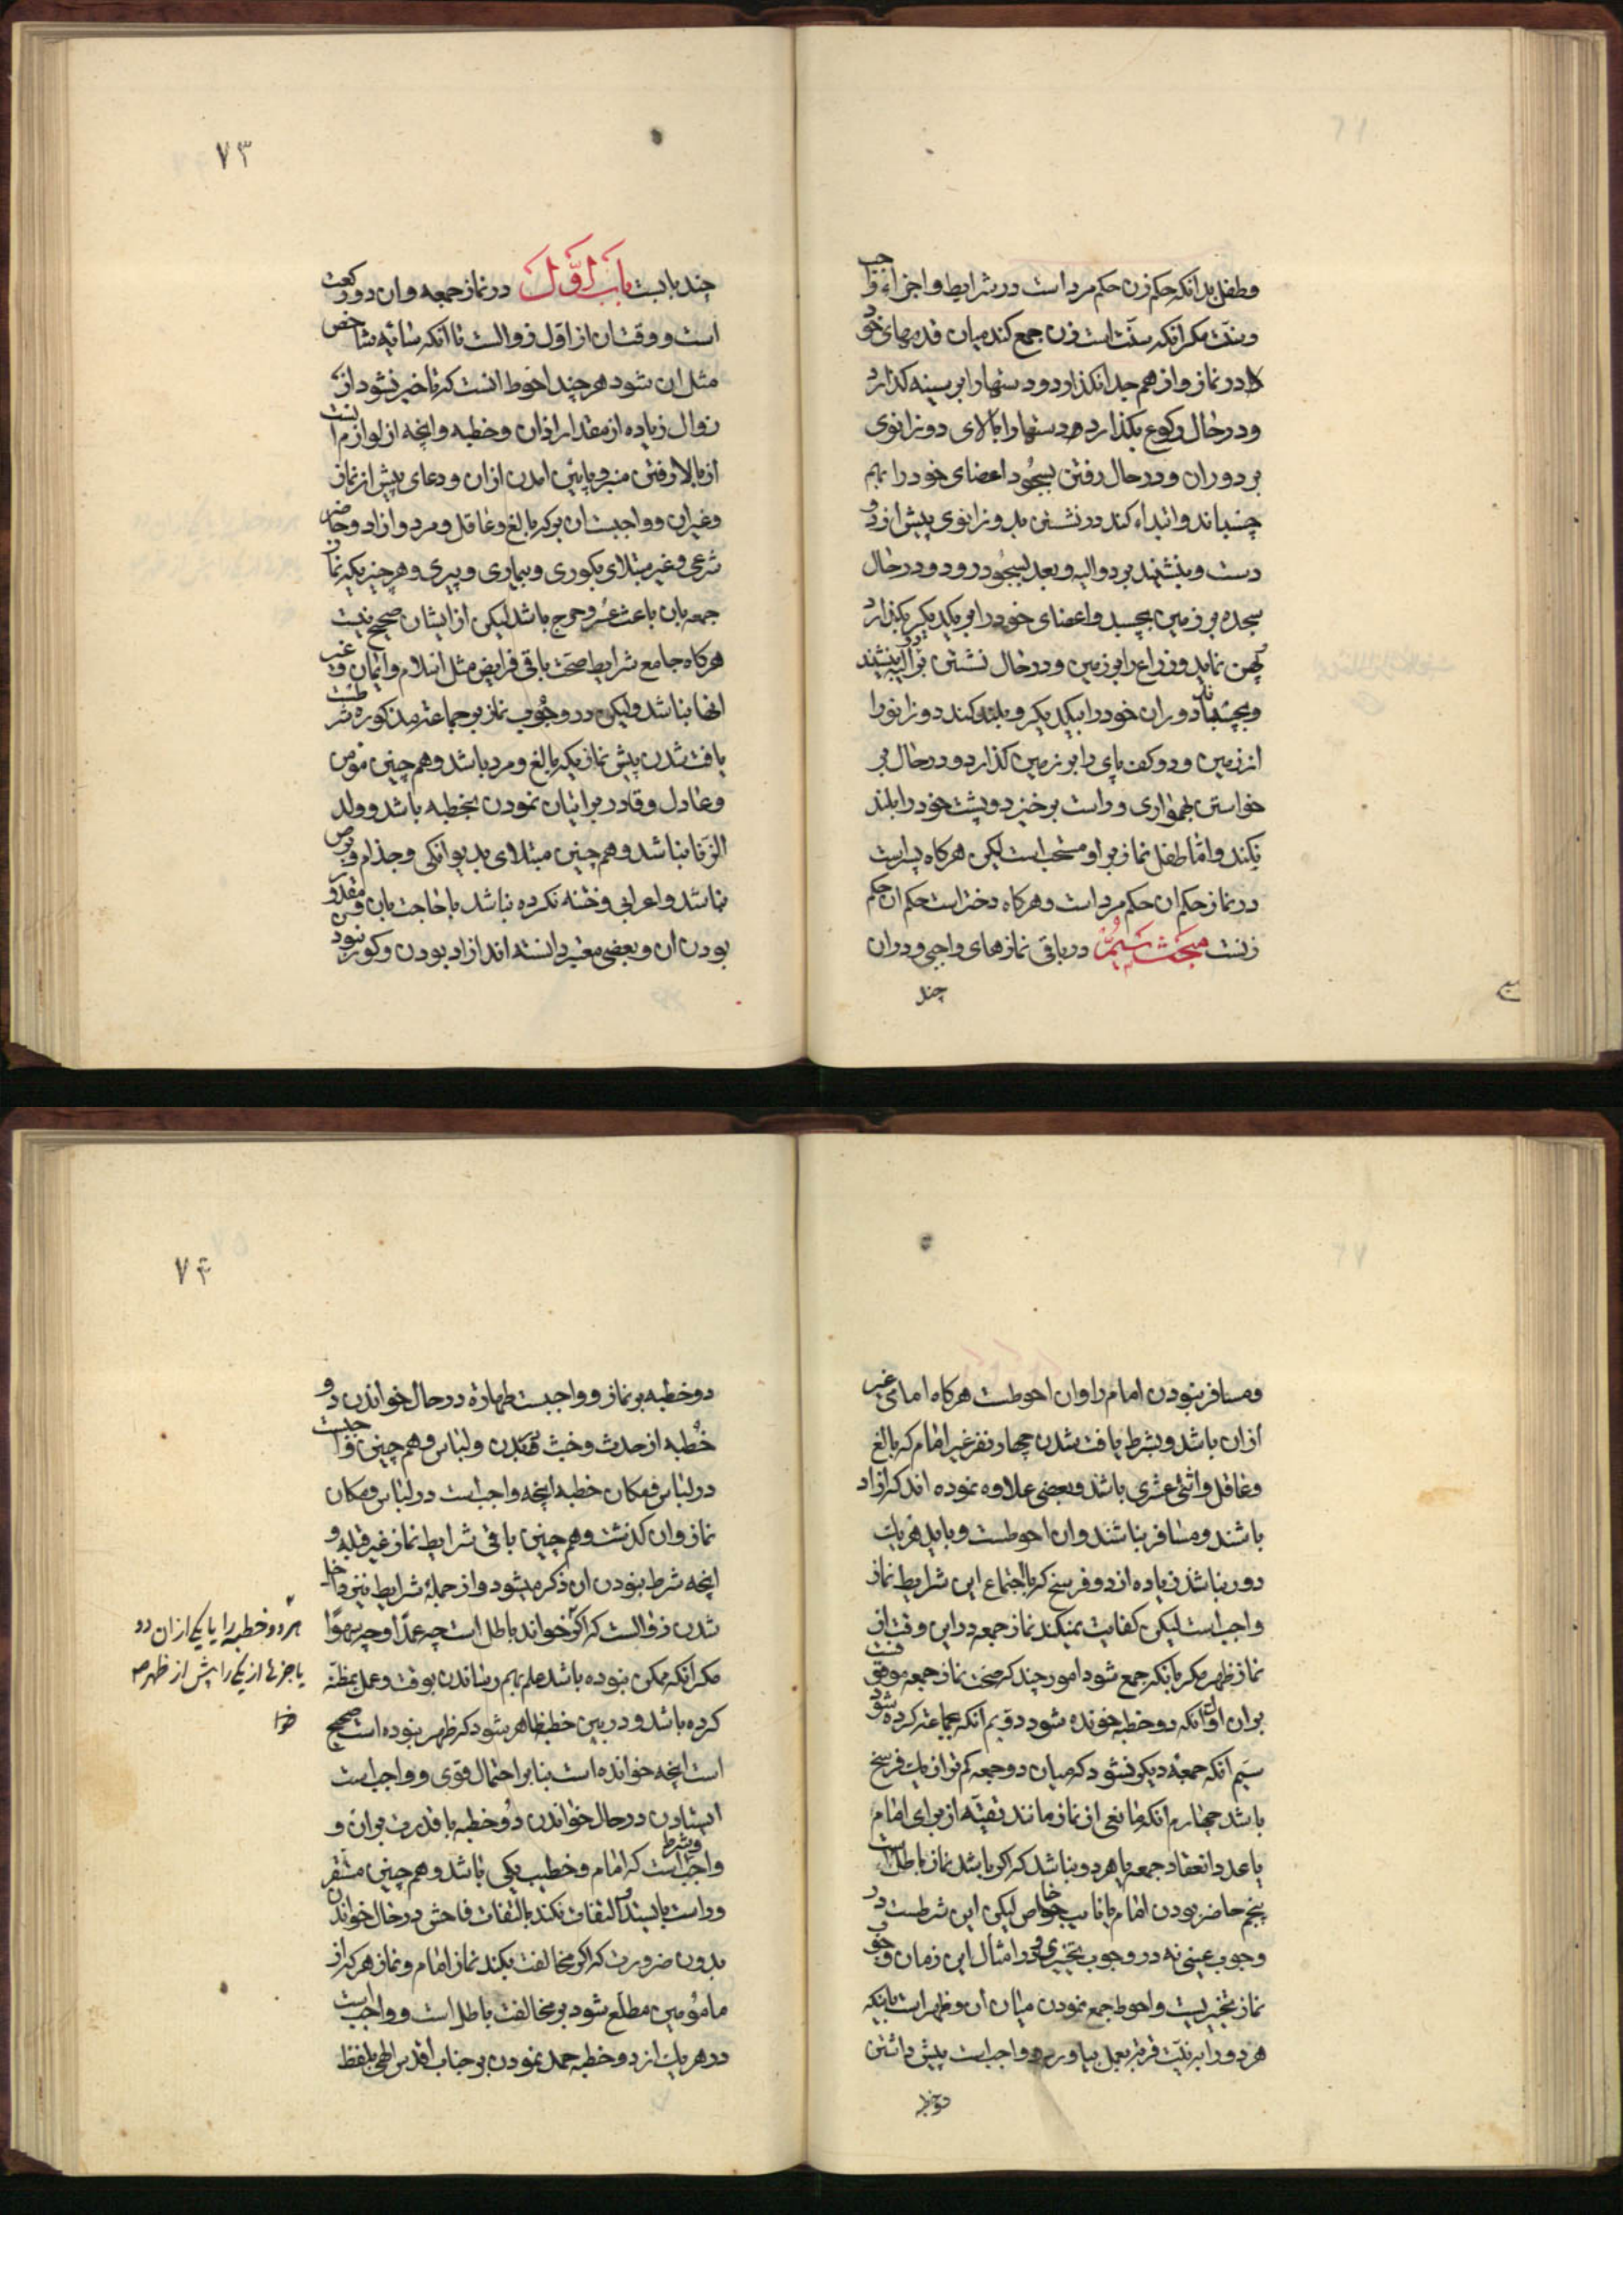 وطفل بدانکه حکم زن حکم مرد است در شرایط و اجزاء واجب
وسنّت مکر انکه سنّت است زن جمع کند میان قدمهای خود
را در نماز و از هم جدا نکذارد و دستها را بر سینه کذارد
و در حال رکوع بکذارد دستها را بالای دو زانوی
بر دو ران و در حال رفتن بسجود اعضای خود را بهم
چسباند و ابتداء کند در نشستن بدو زانوی پیش از دو
دست و بنشیند بر دو الیه و بعد بسجُود رود و در حال
سجده بر زمین بچسبد و اعضای خود را بر یکدیکر بکذارد
پهن نماید و ذراع را بر زمین و در حال نشستن بر دو الیه بنشیند
و بچسباند دو ران خود را بیکدیکر و بلند کند دو زانو را
از زمین و دو کف پای را بر زمین کذارد و در حال بر
خواستن بهمواری و راست برخیزد و پشت خود را بلند
نکند و امّا طفل نماز بر او مستحب است لیکن هرکاه پسر است
در نماز حکم ان حکم مرد است و هرکاه دختر است حکم ان حکم
زنست مبحث سیُم در باقی نمازهای واجبی و در ان
چند
٧٣
چند بابست باب اوّل در نماز جمعه و ان دو رکعت
است و وقت ان از اوّل زوالست تا انکه سایه شاخص
مثل ان شود هر چند احوط انست که تاخیر نشود از
زوال زیاده از مقدار اذان و خطبه و انچه از لوازم انست
از بالا رفتن منبر و پایین امدن از ان و دعای پیش از نماز
و غیر ان و واجبست ان بر که بالغ و عاقل و مرد و ازاد و حاضر
شرعی و غیر مبتلای بکوری و بیماری و پیری و هر چیزیکه نماز
جمعه بان باعث عُسر و حرج باشد لیکن از ایشان صحیح نیست
هرکاه جامع شرایط صحّت باقی فرایض مثل اسلام و ایمان و غیر
انها نباشد ولیکن در وجُوب نماز بر جماعت مذکوره شرطست
یافت شدن پیش نماز یکه بالغ و مرد باشد و هم چنین مؤمن
و عادل و قادر بر اتیان نمودن بخطبه باشد و ولد
الزّنا نباشد و هم چنین مبتلای بدیوانکی و جذام و برص
نباشد و اعرابی و ختنه نکرده نباشد با حاجت بان و مقدور
بودن ان و بعضی معتبر دانسته اند ازاد بودن و کور نبودن
و مسافر نبودن امام را و ان احوطست هرکاه امامی غیر
از ان باشد و بشرط یافت شدن چهار نفر غیر امام که بالغ
و عاقل و اثنی عشری باشد و بعضی علاوه نموده اند که ازاد
باشند و مسافر نباشند و ان احوطست و باید هریک
دور نباشد زیاده از دو فرسخ که با اجتماع این شرایط نماز
واجب است لیکن کفایت نمیکند نماز جمعه در این وقت از
نماز ظهر مکر بانکه جمع شود امور چند که صحّت نماز جمعه موقوفست
بر ان اوّل انکه دو خطبه خونده شود دویم انکه بجماعت کرده شود
سیُم انکه جمعهٔ دیکر نشود که میان دو جمعه کم تر از یک فرسخ
باشد چهارم انکه مانعی از نماز مانند تقیّه از برای امام
یا عدد انعقاد جمعه یا هر دو نباشد که اکر باشد نماز باطل است
پنجم حاضر بودن امام یا نایب خاص لیکن این شرطست در
وجوب عینی نه در وجوب تخییری و در امثال این زمان وجوب
نماز تخییریست و احوط جمع نمودن میان ان و ظهر است بانکه
هر دو را به نیّت قربة بعمل بیاورد و واجب است پیش داشتن
دو خطبه
٧۴
دو خطبه بر نماز و واجبست طهارة در حال خواندن دو
خُطبه از حدث و خبث بدن و لباس و هم چنین واجبست
در لباس و مکان خطبه انچه واجب است در لباس و مکان
نماز و ان کذشت و هم چنین باقی شرایط نماز غیر قبله و
انچه شرط بنودن ان ذکر میشود و از جملهٔ شرایط نیز داخل
شدن زوالست که اکر خواند باطل است چه عمدًا و چه سهوًا
مکر انکه ممکن نبوده باشد علم بهم رساندن بوقت و عمل بمظنّه
کرده باشد و در بین خطبه ظاهر شود که ظهر نبوده است صحیح
است انچه خوانده است بنا بر احتمال قوی و واجب است
ایستادن در حال خواندن دو خطبه با قدرت بر ان و
واجب و شرط است که امام و خطیب یکی باشد و هم چنین مستقر
و راست بایستد و التفات نکند بالتفات فاحش در حال خواندن
بدون ضرورت که اکر مخالفت بکند نماز امام و نماز هر که از
مامُومین مطلّع شود بر مخالفت باطل است و واجب است
در هریک از دو خطبه حمد نمودن بر جناب اقدس الهی بلفظ
هر دو خطبه را یا یکی از ان دو
یا جزئی از یکی را پیش از ظهر